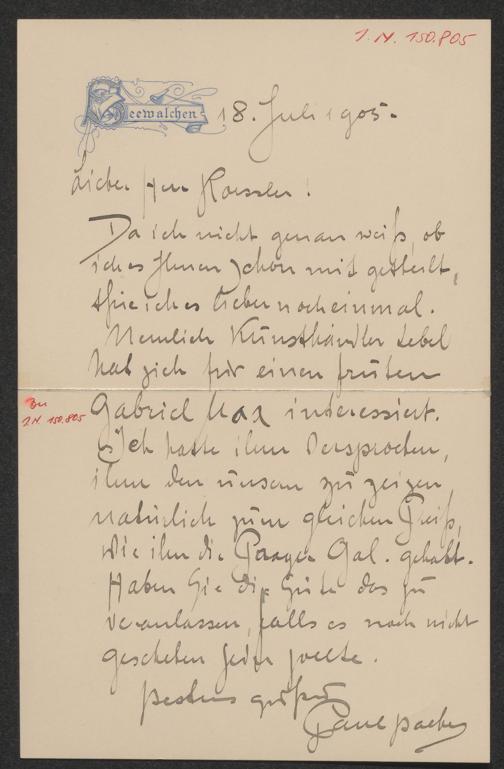 I.N. 150.805
Seewalchen 18. Juli 1905.
Lieber Herr Roessler!
Da ich nicht genau weiß, ob
ich es Ihnen schon mitgetheilt,
thue ich es lieber noch einmal.
Nemlich Kunsthändler Lebel
hat sich für einen
zu
I.N. 150.805
Gabriel Max interessiert.
Ich hatte ihm versprochen,
ihm den unsern zu zeigen,
natürlich zum gleichen Preiß,
wie ihn die Prager Gal. gehabt.
Haben Sie die Güte das zu
veranlassen, falls es noch nicht
geschehen sein sollte.
bestens grüßend